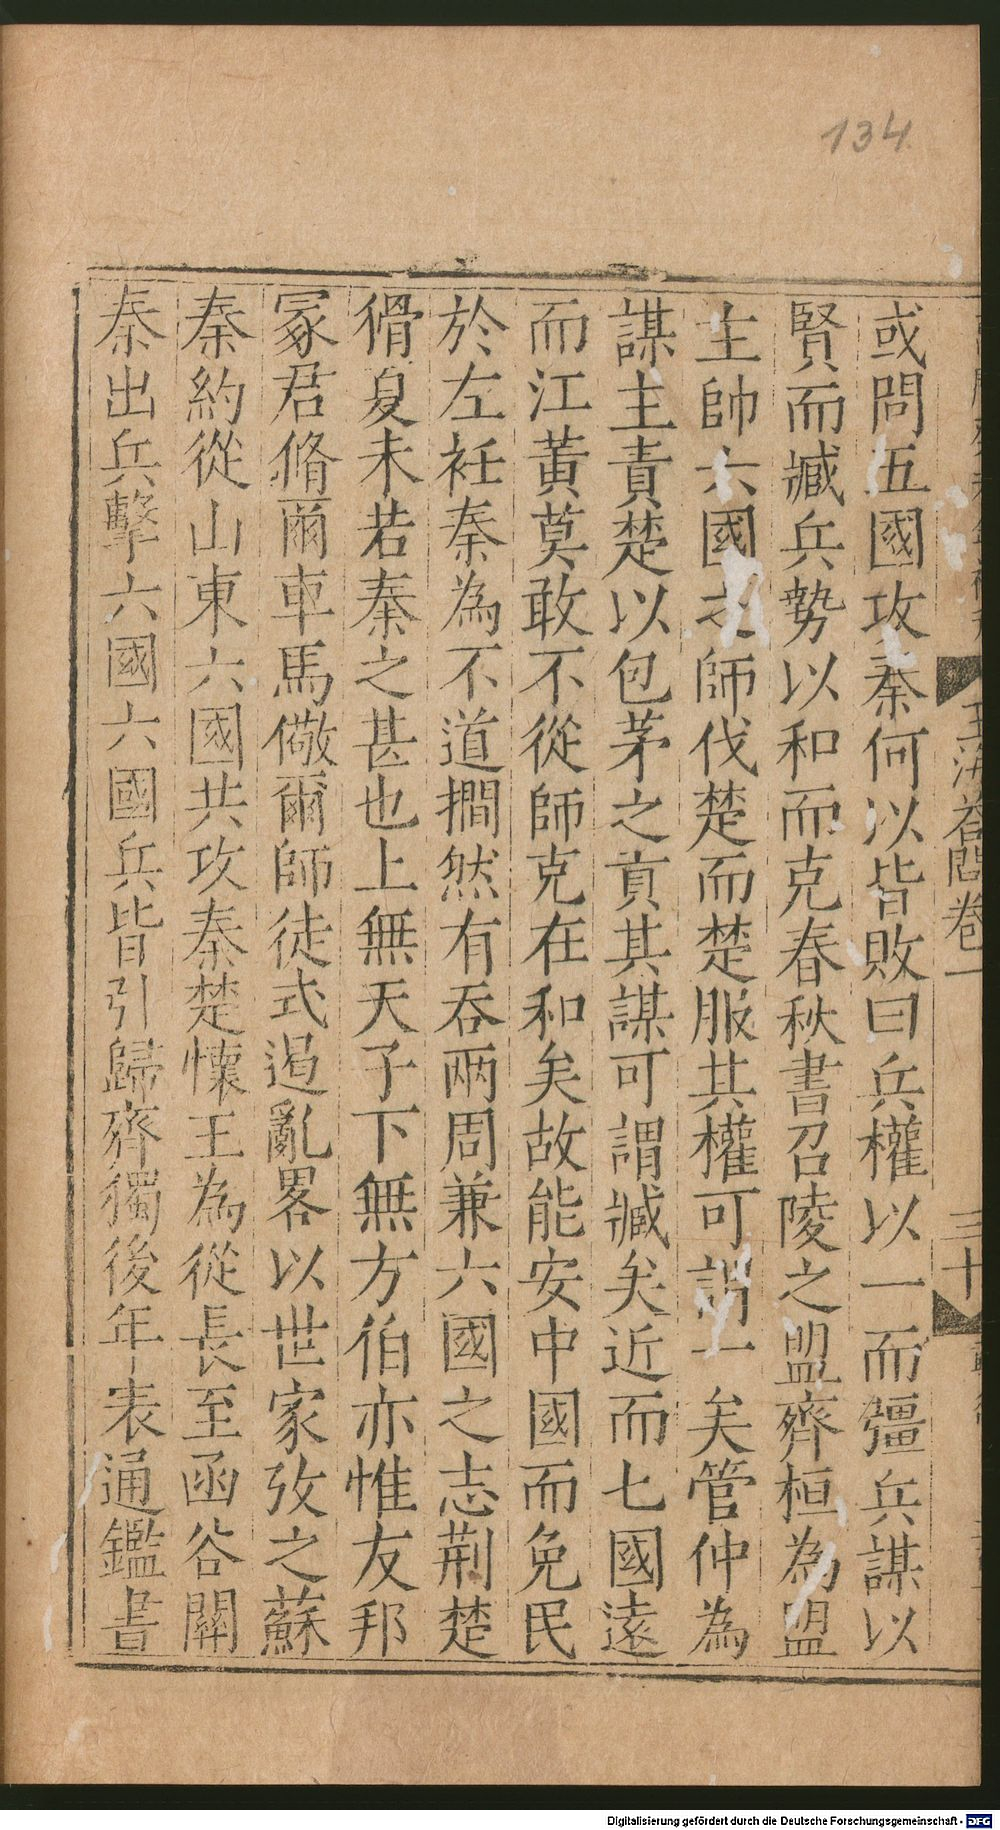 134
或問五國攻秦何以皆敗曰兵權以一而彊兵謀以
賢而臧兵勢以和而克春秋書召陵之盟齊桓為盟
主帥六國之師伐楚而楚服其權可謂一矣管仲為
謀主責楚以包茅之貢其謀可謂臧矣近而七國遠
而江黃莫敢不從師克在和矣故能安中國而免民
於左衽秦為不道撊然有吞兩周兼六國之志荆楚
猾夏未若秦之甚也上無天子下無方伯亦惟友邦
冢君脩爾車馬儆爾師徒式遏亂畧以世家攷之蘇
秦約從山東六國共攻秦楚懷王為從長至函谷關
秦出兵擊六國六國兵皆引歸齊獨後年表通鑑書
玉海荅問卷一
三十
Digitalisierung gefördert durch die Deutsche Forschungsgemeinschaft - DFG